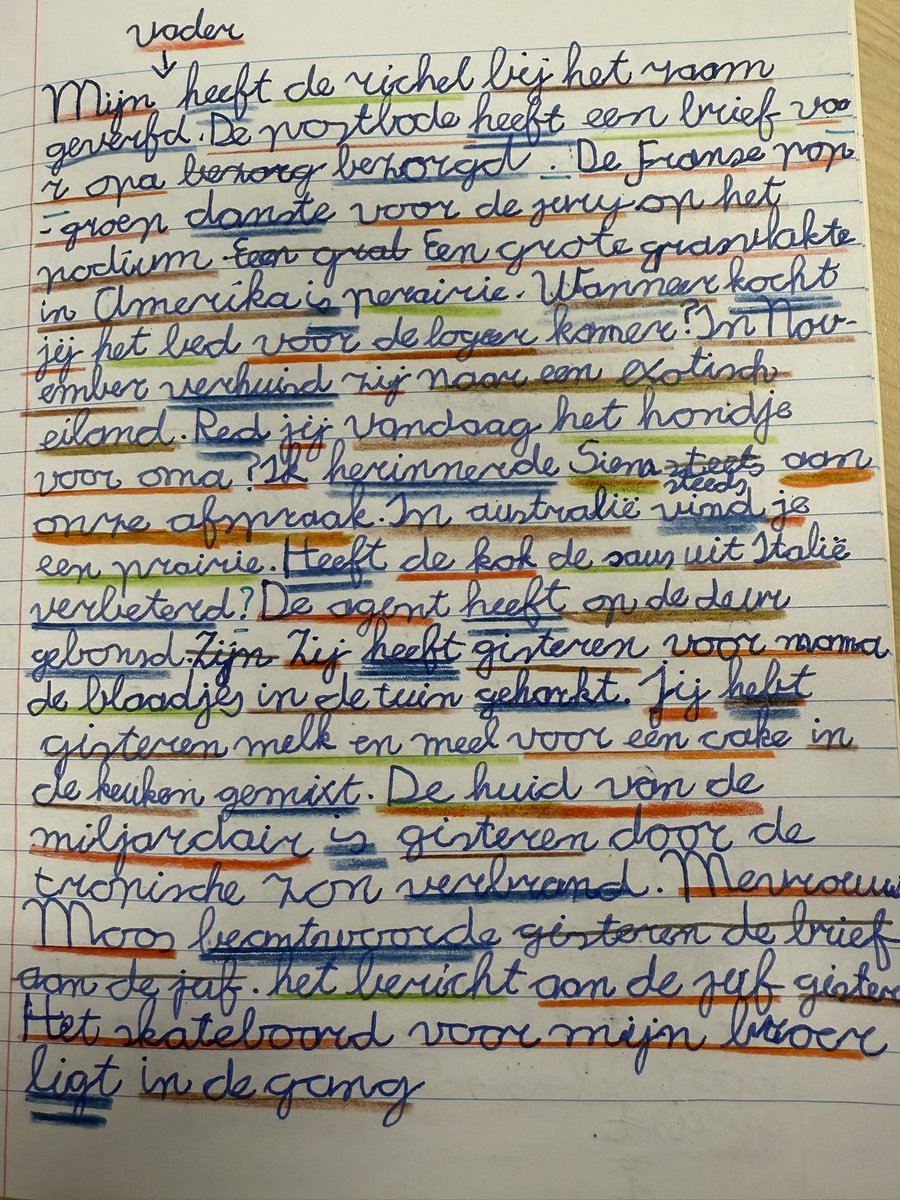 vader
Mijn heeft de richel bij het raam
geverfd. De postbode heeft een brief voo
r opa bezorg bezorgd. De Franse pop
-groep danste voor de jury op het
podium Een grat Een grote grasvlakte
in Amerika is perairie. Wanneer kocht
jij het bed voor de logeer kamer? In Nov-
ember verhuisd zij naar een exotisch
eiland. Red jij vandaag het hondje
voor oma? Ik herinnerde Siena steets aan
steeds
onze afspraak. In australië vind je
een prairie. Heeft de kok de saus uit Italië
verbeterd? De agent heeft op de deur
gebonsd. Zijn Zij heeft gisteren voor mama
de blaadjes in de tuin geharkt. Jij hebt
gisteren melk en meel voor een cake in
de keuken gemixt. De huid van de
miljardair is gisteren door de
tropische zon verbrand. Mevrouw
Moos beantwoorde gisteren de brief
aan de juf. het bericht aan de juf gister
Het skateboord voor mijn broer
ligt in de gang